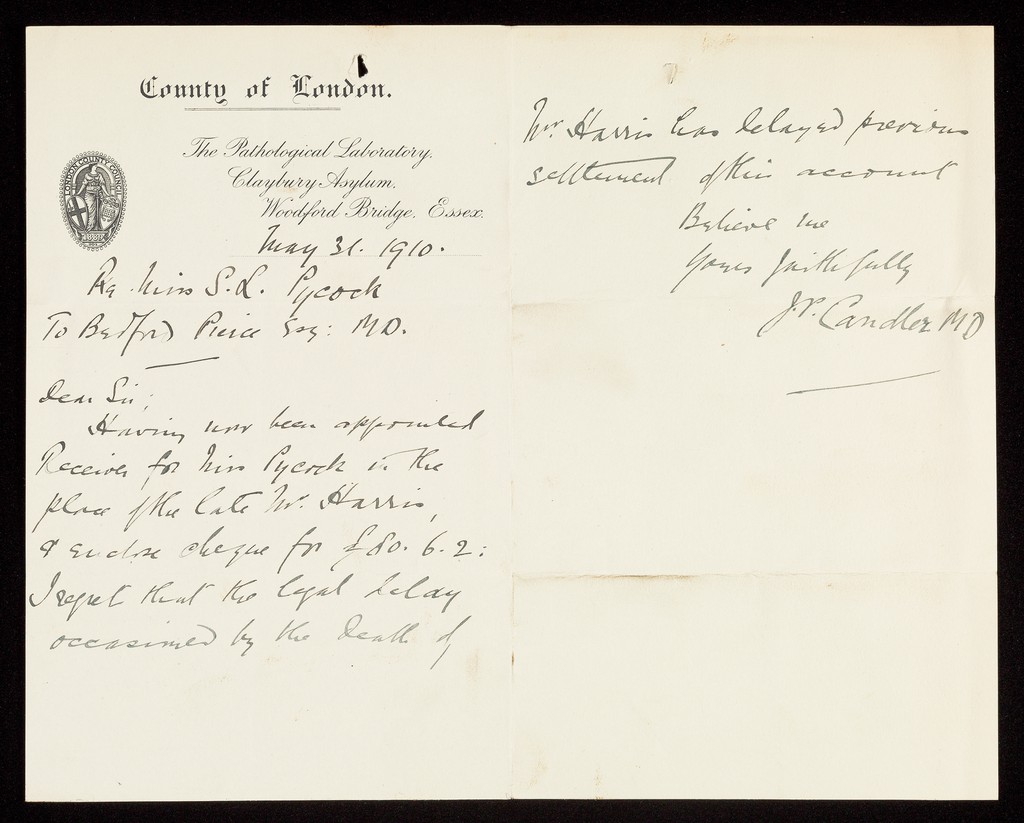 County of London.
LONDON COUNTY COUNCIL
The Pathological Laboratory.
Claybury Asylum.
Woodford Bridge. Essex.
May 31. 1910.
Re Miss S.L. Pycock
To Bedford Pierce Esq: M.D.
Dear Sir,
Having now been appointed
Receiver for Miss Pycock in the
place of the late Mr. Harris,
I enclose cheque for £80. 6. 2:
I regret that the legal delay
occasioned by the death of
Mr. Harris has delayed previous
settlement of this account
Believe me
Yours faithfully
J.P. Candler MD